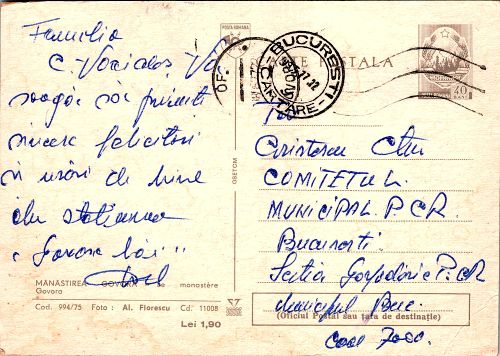 Familia
C. Voiculos
roagă să primiți
sincere felicitări
și urări de bine
din stațiunea
"Govora băi"
MÂNĂSTIREA GOVORA monastère
Govoro
Cod. 994/75 Foto: Al. Florescu Cd. 11008
Lei 1,90
POSTA ROMANA
CARTE POSTALA
BUCURESTI
CARTARE
40
BANI
COMITETUL
MUNICIPAL P.C.R.
București
Secția Gospodărie P.CR
Municipiul Buc.
(Oficiul Postal sau țara de destinație)